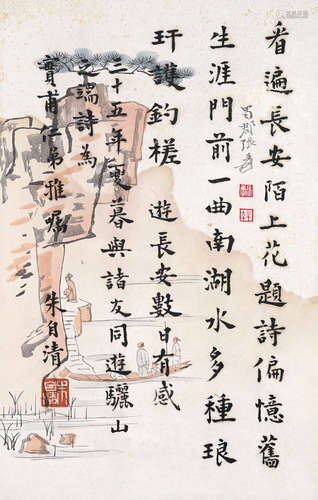 看遍長安陌上花題詩偏憶舊
生涯門前一曲南湖水多種琅
玕護釣槎 遊長安數日有感
三十五年夏暮與諸友同遊驪山
之端詩為
實甫仁弟雅嘱 朱自清
蜀郡張爰